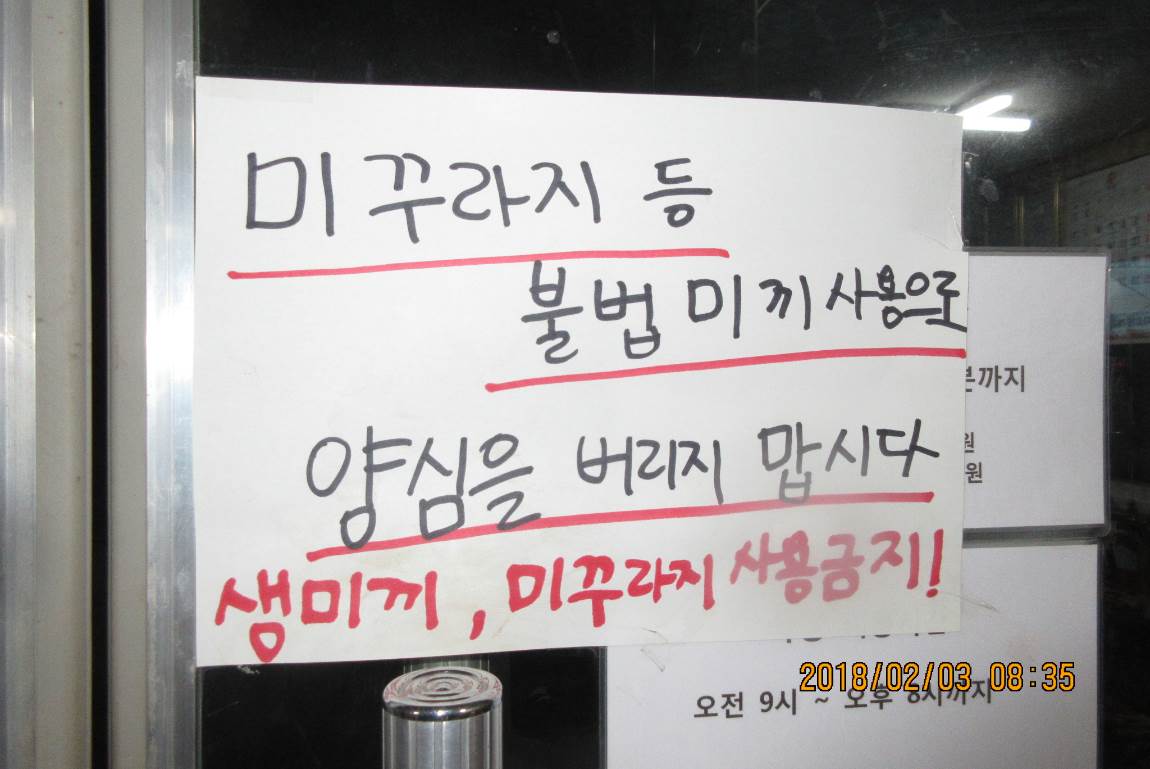 미꾸라지 등
불법미끼사용으로
양심을 버리지 맙시다
생미끼, 미꾸라지 사용금지!
까지
원
원
2018/02/03 08:35
오전 9시 ~ 오후 8시까지